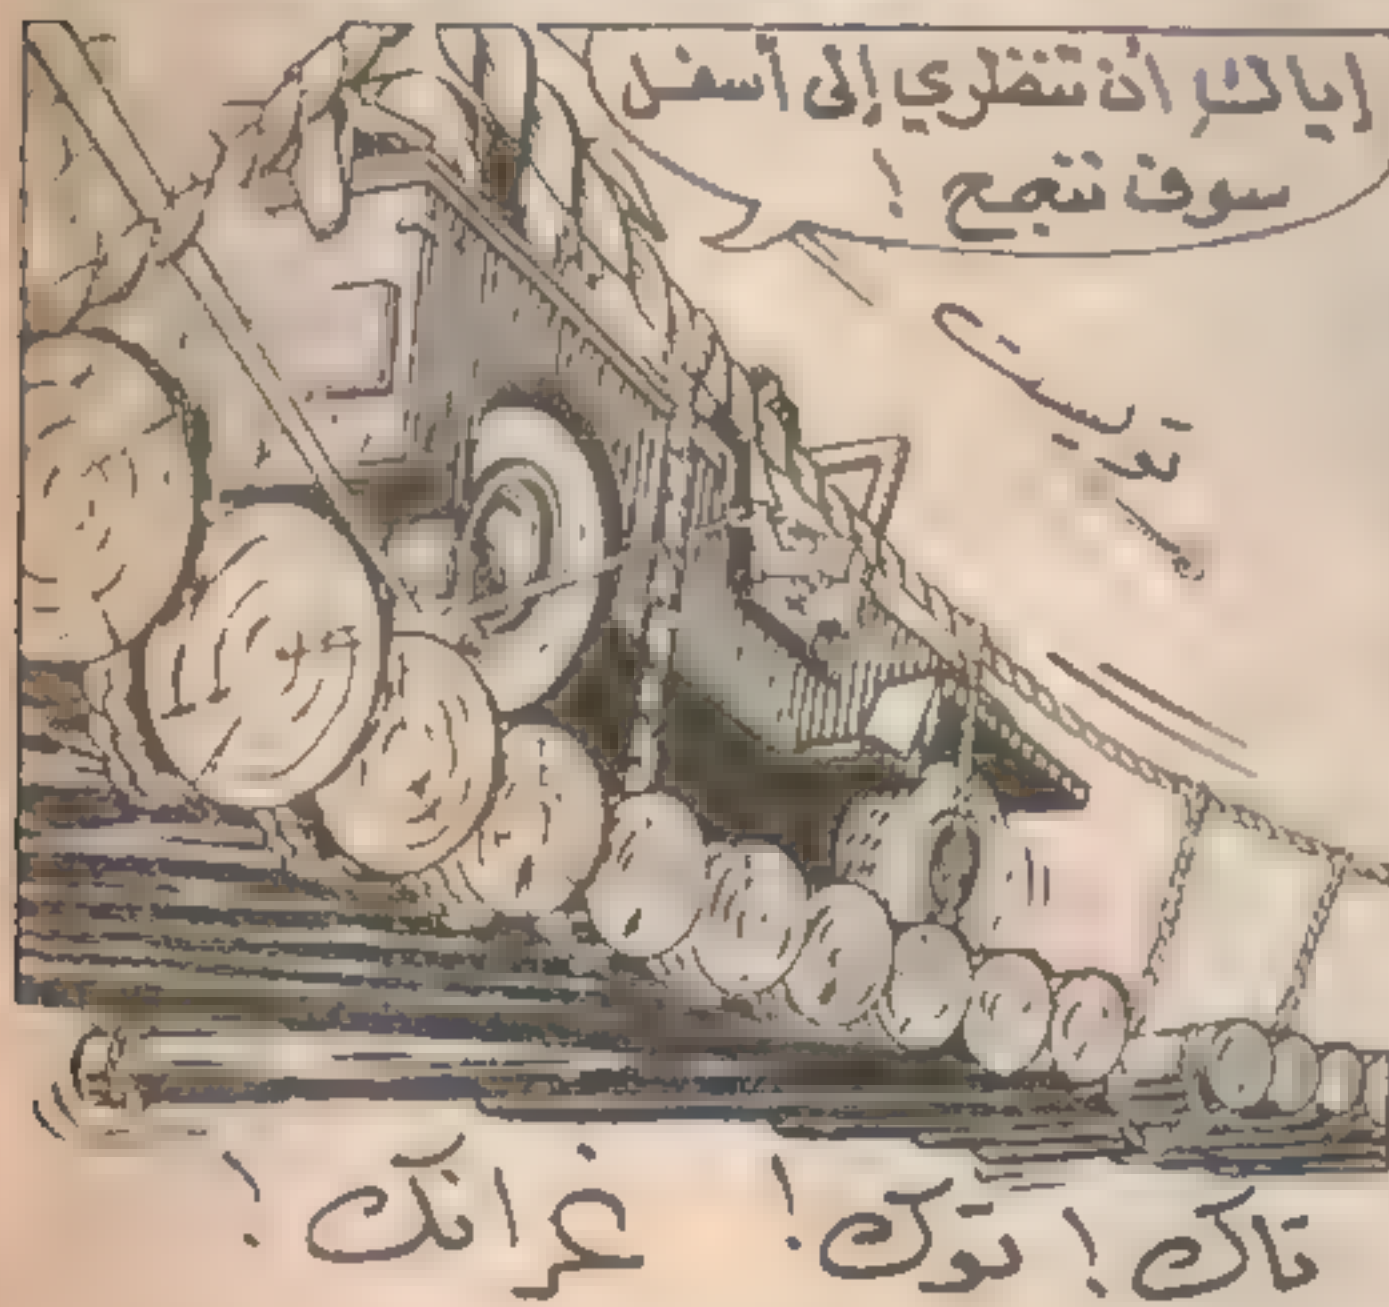 إياكِ أن تنظري إلى أسفل
سوف ننجح !
تويت
تاك ! توك ! غرانك !